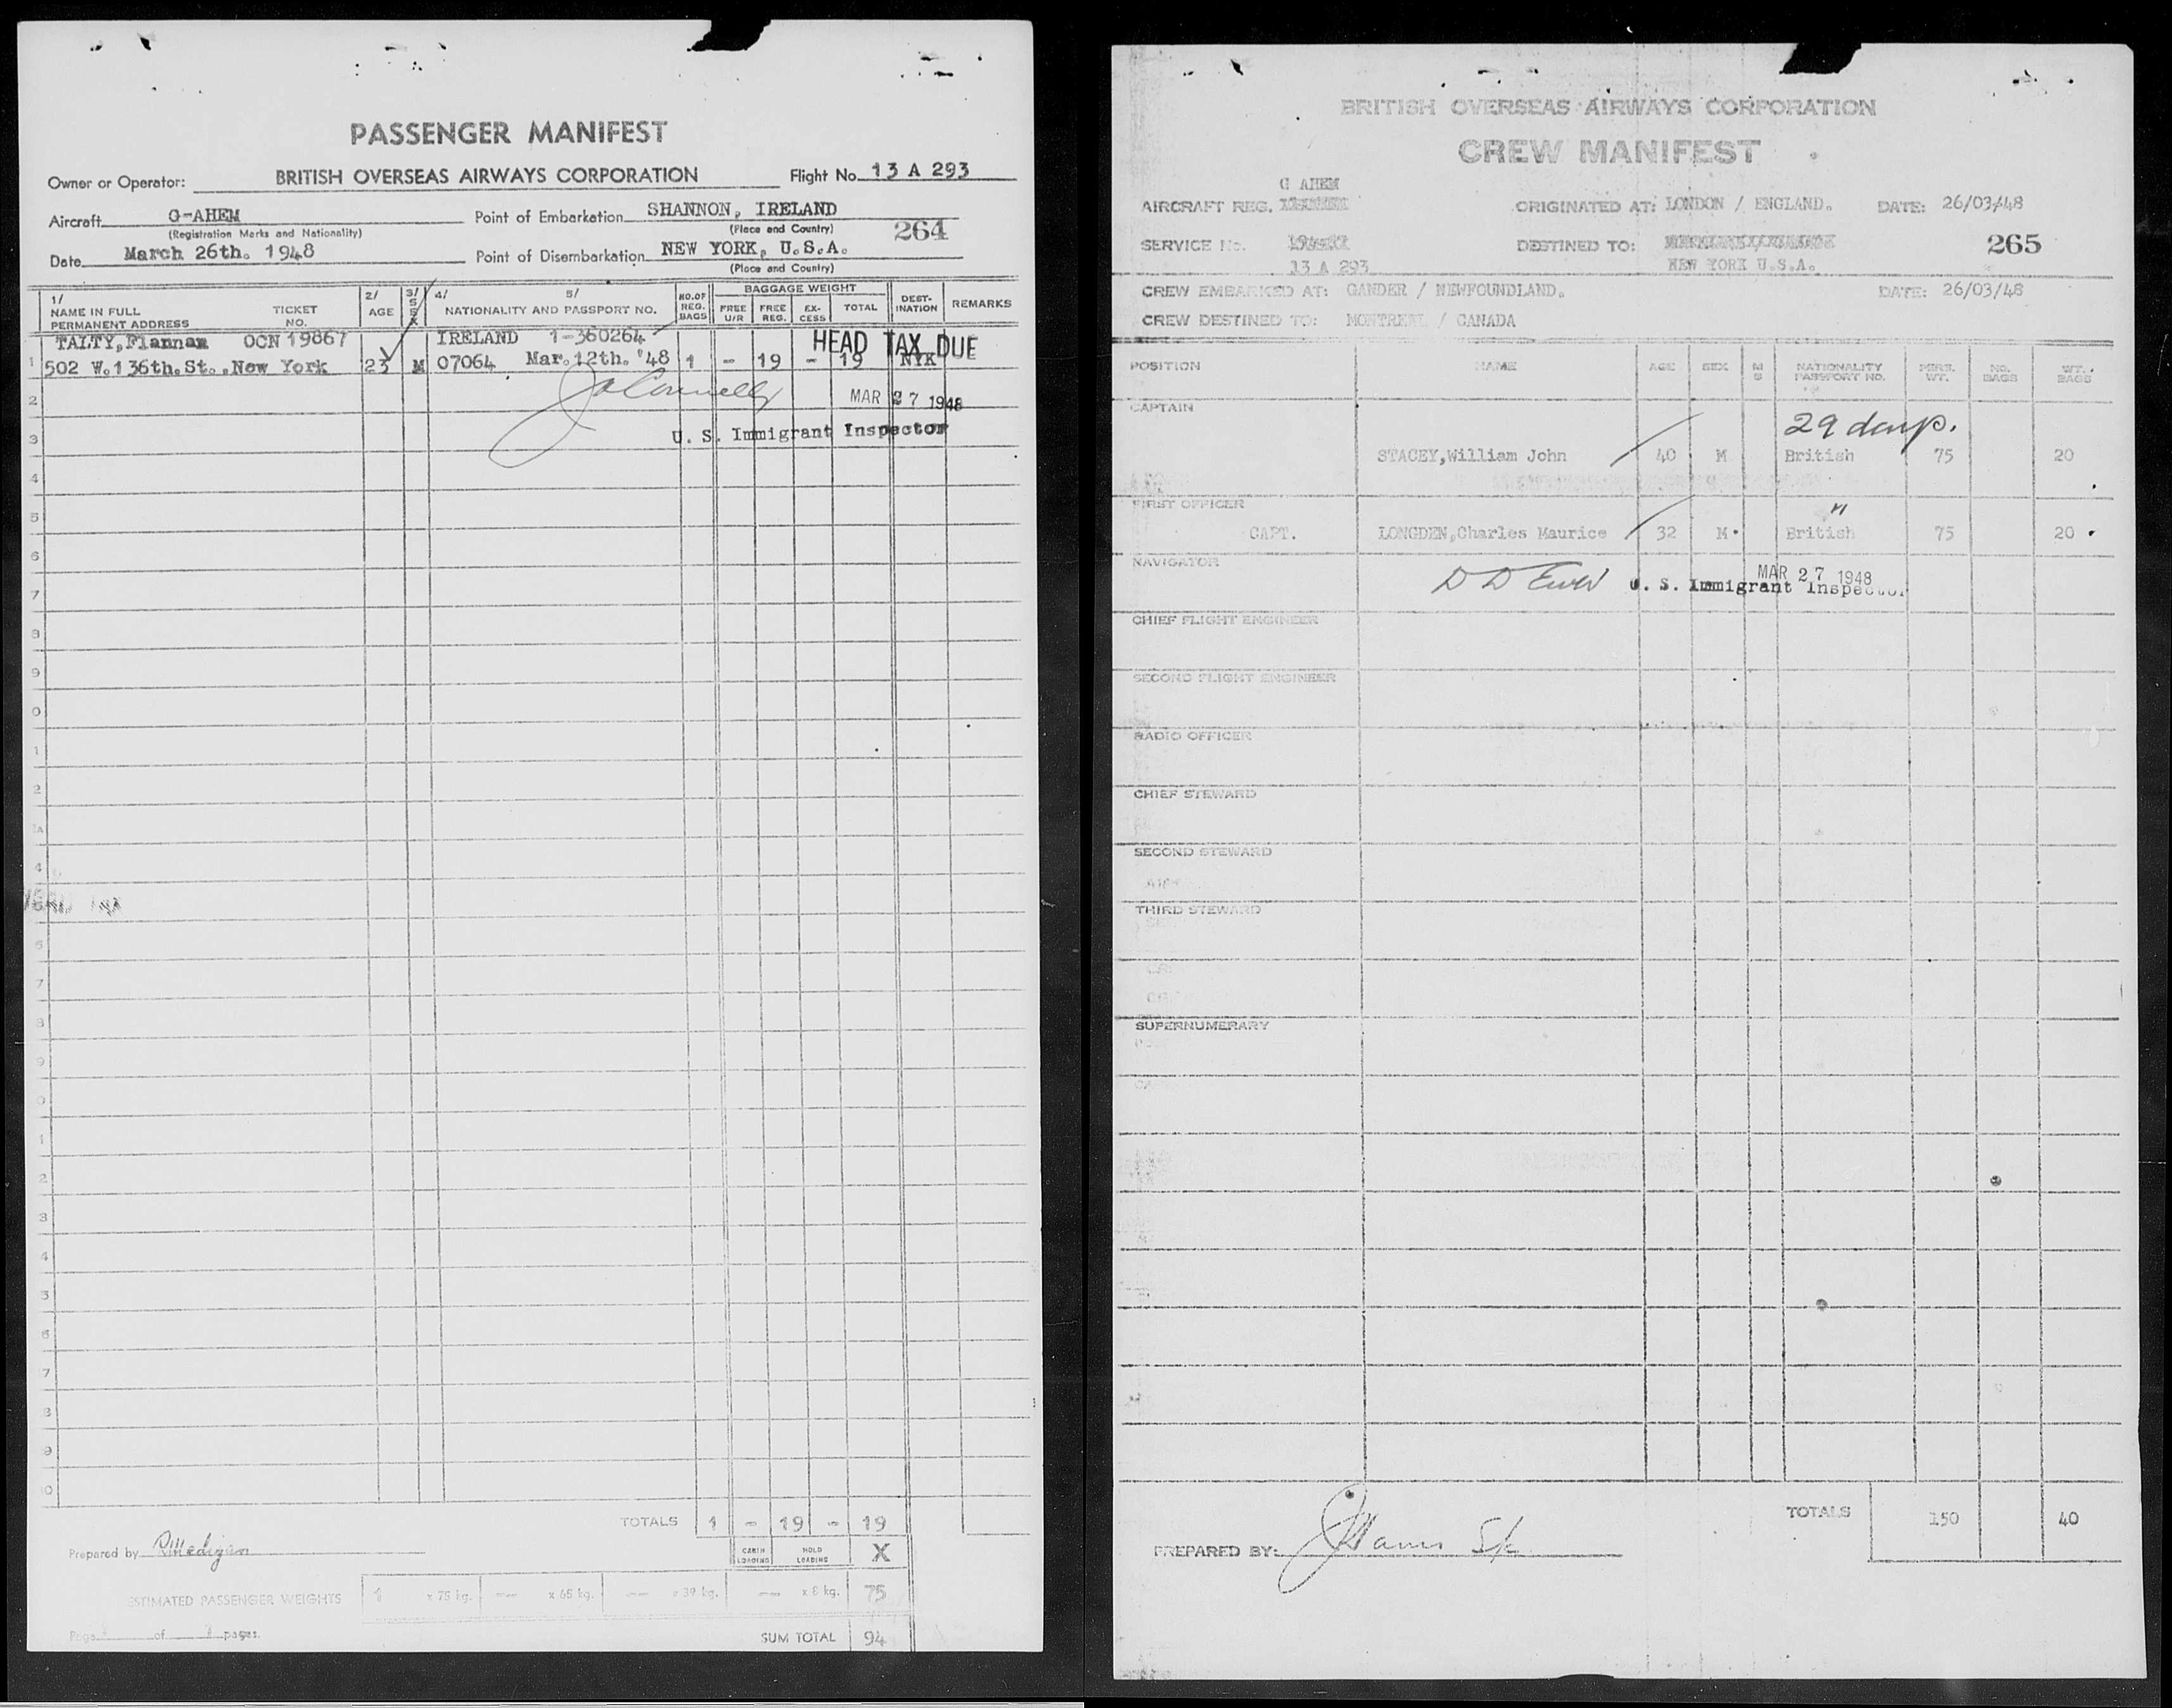 PASSENGER MANIFEST
Owner or Operator: BRITISH OVERSEAS AIRWAYS CORPORATION Flight No. 13 A 293
Aircraft G-AHEM Point of Embarkation SHANNON, IRELAND
(Registration Marks and Nationality) (Place and Country) 264
Date March 26th. 1948 Point of Disembarkation NEW YORK, U.S.A.
(Place and Country)
1/ NAME IN FULL PERMANENT ADDRESS TICKET NO. 2/ AGE 3/ SEX 4/ 5/ NATIONALITY AND PASSPORT NO. NO. OF REG. BAGS BAGGAGE WEIGHT FREE U/R FREE REG. EX-CESS TOTAL DEST-INATION REMARKS
TALTY, Flannan OCN 19867 IRELAND 1-360264 HEAD TAX DUE
1 502 W.136th.St..New York 23 M 07064 Mar.12th.'48 1 - 19 - 19 NYK
2 MAR 27 1948
3 U. S. Immigrant Inspector
4
5
6
7
8
9
0
1
2
4
6
7
8
9
0
1
2
3
4
5
6
7
8
9
0
TOTALS 1 - 19 - 19
Prepared by RMadigan CABIN LOADING HOLD LOADING X
ESTIMATED PASSENGER WEIGHTS 1 x 75 kg. -- x 65 kg. -- x 39 kg. -- x 8 kg. 75
Page of 1 pages. SUM TOTAL 94
BRITISH OVERSEAS AIRWAYS CORPORATION
CREW MANIFEST
G AHEM
AIRCRAFT REG. ORIGINATED AT: LONDON / ENGLAND. DATE: 26/03/48
SERVICE No. DESTINED TO: 265
13 A 293 NEW YORK U.S.A.
CREW EMBARKED AT: GANDER / NEWFOUNDLAND. DATE: 26/03/48
CREW DESTINED TO: MONTREAL / CANADA
POSITION NAME AGE SEX M S NATIONALITY PASSPORT NO. PERS. WT. NO. BAGS WT. BAGS
CAPTAIN 29 days.
STACEY,William John 40 M British 75 20
FIRST OFFICER "
CAPT. LONGDEN,Charles Maurice 32 M British 75 20
NAVIGATOR MAR 27 1948
U. S. Immigrant Inspector
CHIEF FLIGHT ENGINEER
SECOND FLIGHT ENGINEER
RADIO OFFICER
CHIEF STEWARD
SECOND STEWARD
THIRD STEWARD
SUPERNUMERARY
TOTALS 150 40
PREPARED BY: